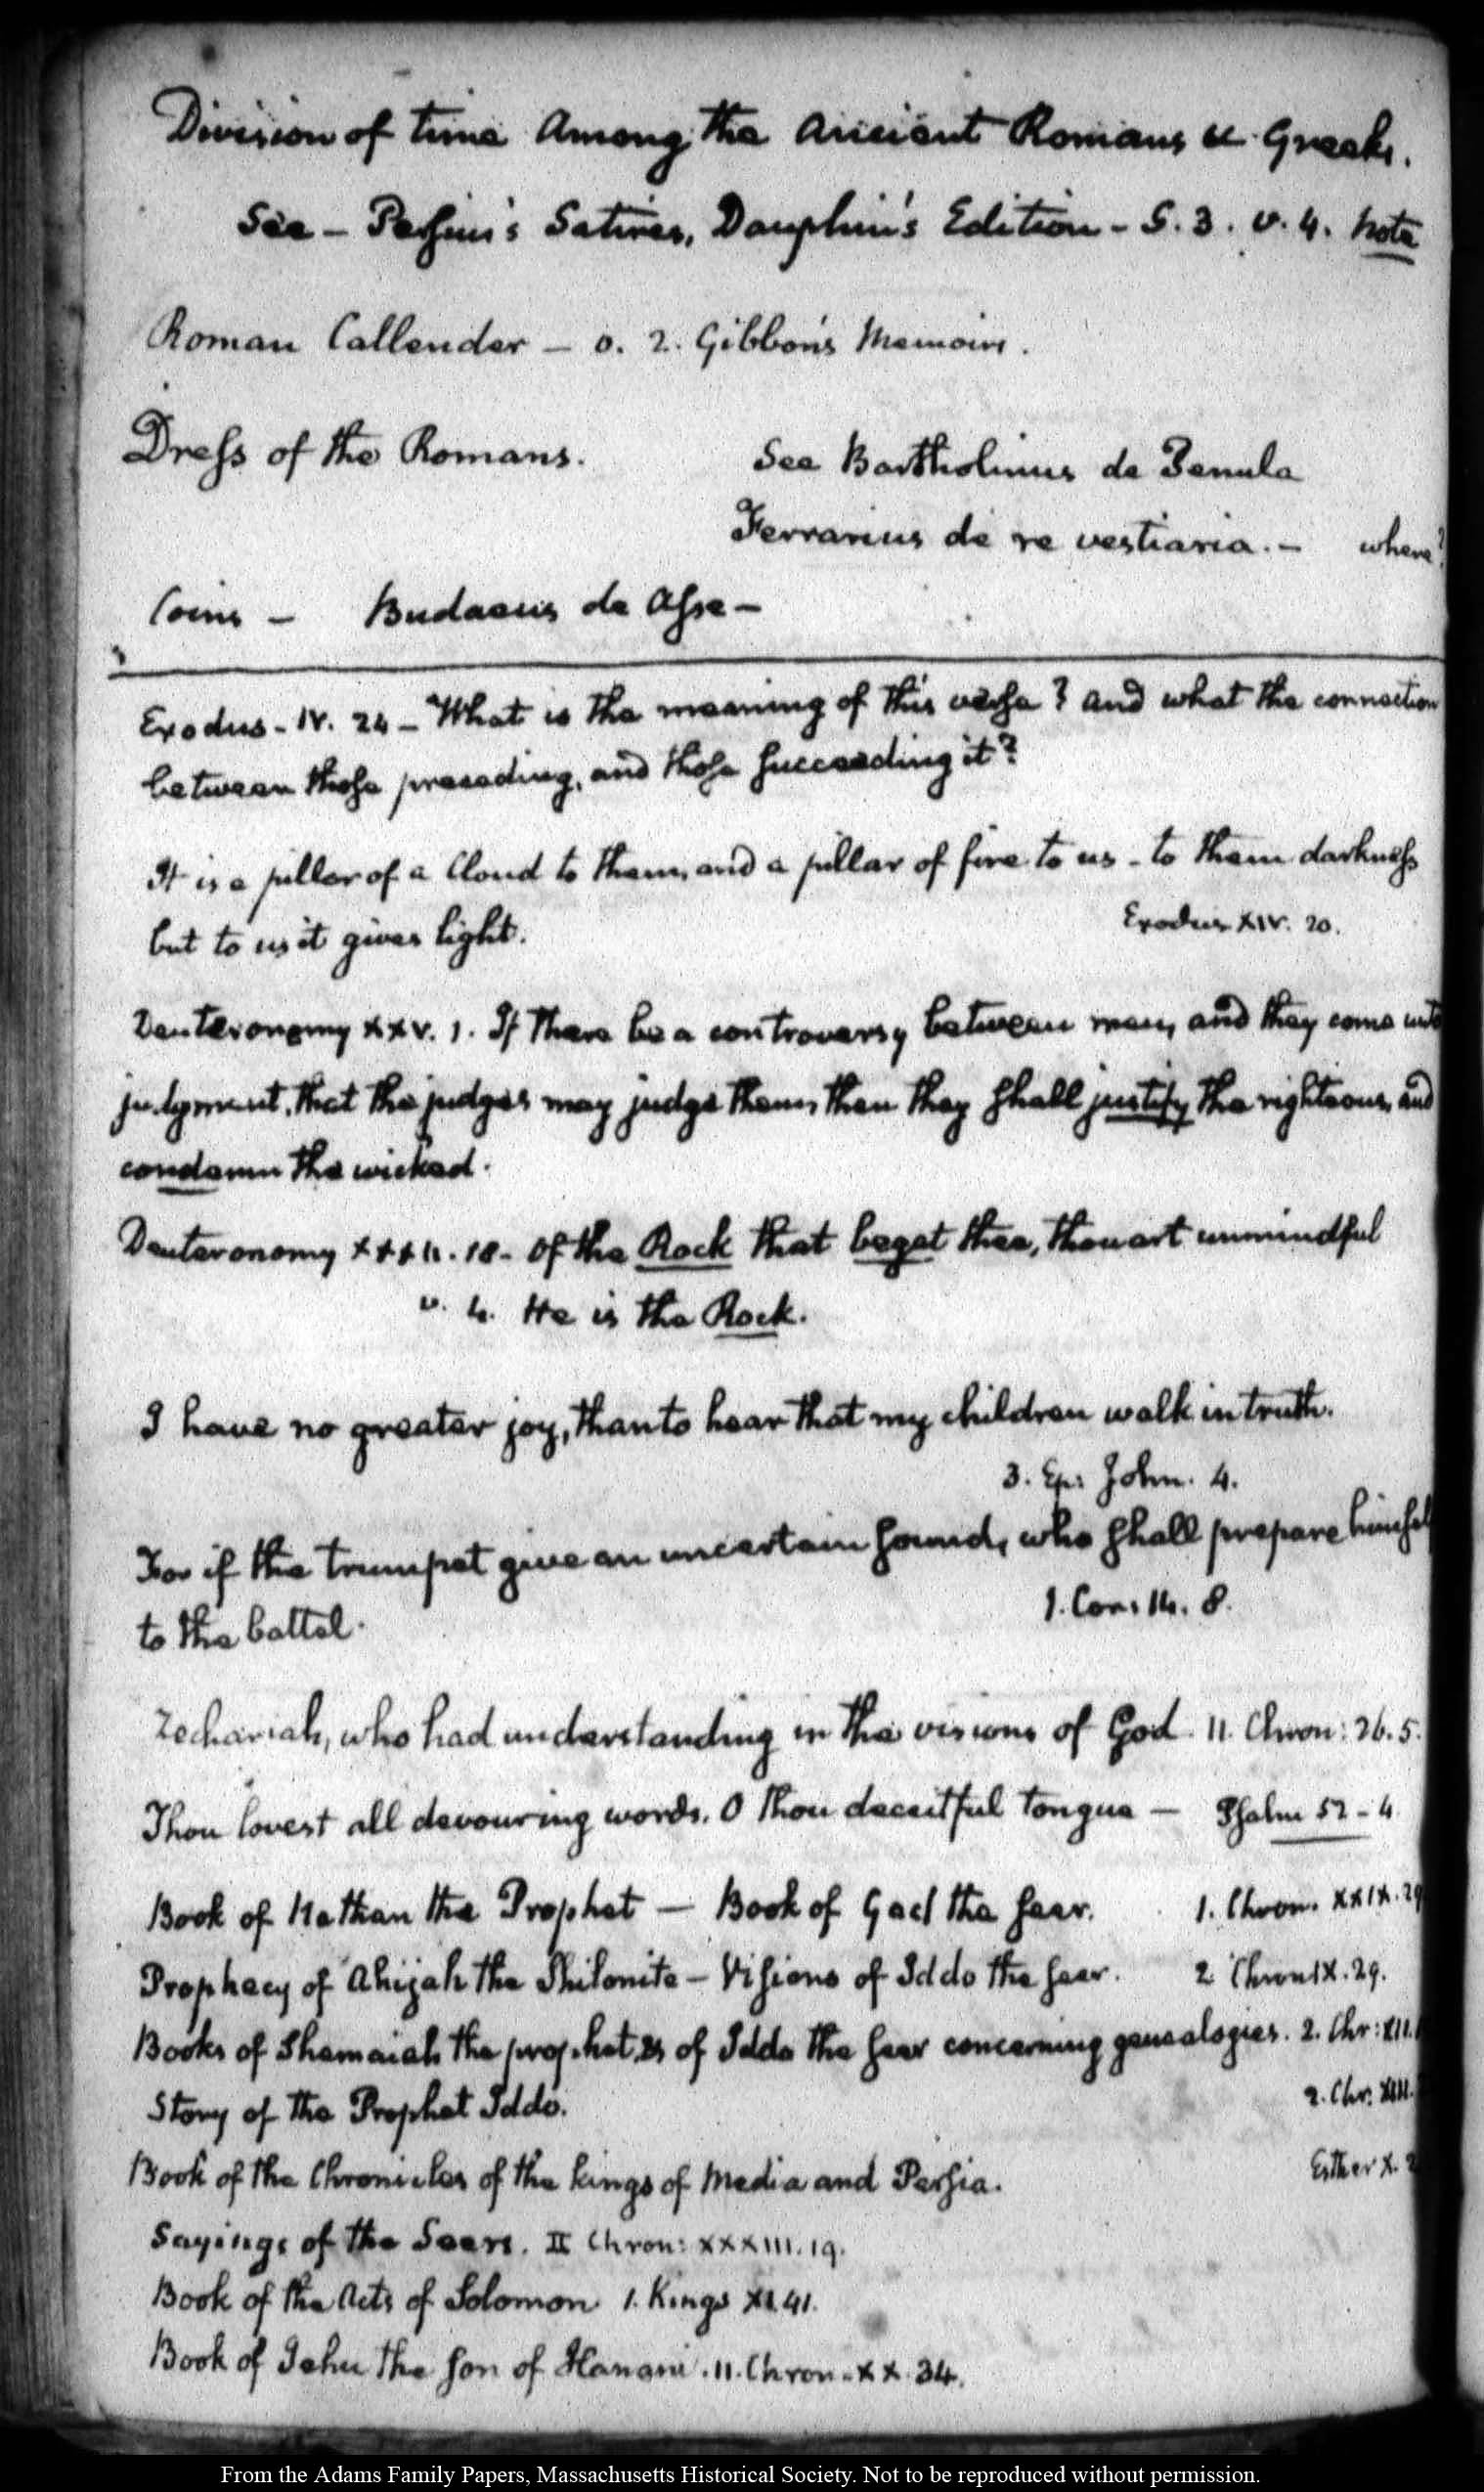 Division of time Among the Ancient Romans & Greeks.
See – Persius's Satires, Dauphin's Edition – S. 3. v. 4. Note
Roman Callender – v. 2. Gibbon's Memoirs.
Dress of the Romans.
See Bartholinus de Penula
Ferrarius de re vestiaria. – where?
Coins – Budaeus de Asse –
Exodus – IV. 24 – What is the meaning of this verse? and what the connection
between those preceeding, and those succeeding it?
It is a pillar of a Cloud to them, and a pillar of fire to us – to them darkness
but to us it gives light.
Exodus XIV. 20.
Deuteronomy XXV. 1. If there be a controversy between men, and they come unto
judgment, that the judges may judge them, then they shall justify the righteous, and
condemn the wicked.
Deuteronomy XXXII. 18 – Of the Rock that begat thee, thou art unmindful
v. 4. He is the Rock.
I have no greater joy, than to hear that my children walk in truth.
3. Ep: John. 4.
For if the trumpet give an uncertain sound, who shall prepare himself
to the battel.
1. Cor: 14. 8.
Zechariah, who had understanding in the visions of God. II. Chron: 26. 5.
Thou lovest all devouring words. O thou deceitful tongue – Psalm 52 – 4
Book of Nathan the Prophet – Book of Gad the seer. 1. Chron. XXIX. 29
Prophecy of Ahijah the Shilonite – Visions of Iddo the seer. 2 Chron IX. 29.
Books of Shemaiah the prophet, & of Iddo the seer concerning genealogies. 2. Chr: XII.
Story of the Prophet Iddo. 2. Chr. XIII.
Book of the Chronicles of the kings of Media and Persia. Esther X. 2
Sayings of the Seers. II Chron: XXXIII. 19.
Book of the Acts of Solomon 1. Kings XI. 41.
Book of Jehu the son of Hanani. II. Chron – XX. 34.
From the Adams Family Papers, Massachusetts Historical Society. Not to be reproduced without permission.